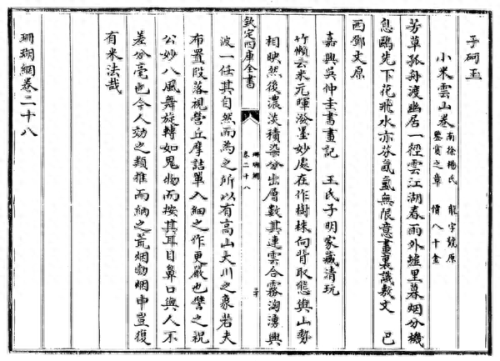 子砢玉
小米雲山卷 南徐楊氏 鑒賞之章 龍字號原 價八十金
芳草孤舟渡幽居一徑雲江湖春雨外墟里暮烟分機
息鷗先下花飛水亦芬氤氳無限意畫裏識敷文 巴
西鄧文原
嘉興吳仲圭書畫記 王氏子明家藏清玩
竹懶云米元暉潑墨妙處在作樹株向背取態與山勢
欽定四庫全書
珊瑚網
卷二十八
相映然後濃淡積染分出層數其連雲合霧洶湧興
波一任其自然而為之所以有高山大川之象若夫
布置段落視營丘摩詰輩入細之作更嚴也譬之祝
公妙八風舞旋轉如鬼物而按其耳目鼻口與人不
差分毫也令人效之類推而納之荒烟勃中豈復
有米法哉
珊瑚網卷二十八